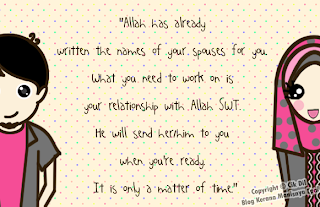 "Allah has already
written the names of your spouses for you.
What you need to work on is
your relationship with Allah SWT.
He will send her/him to you
when you're ready.
It is only a matter of time."
Copyright © Cik Dil
- Blog Kerana Manisnya Epal